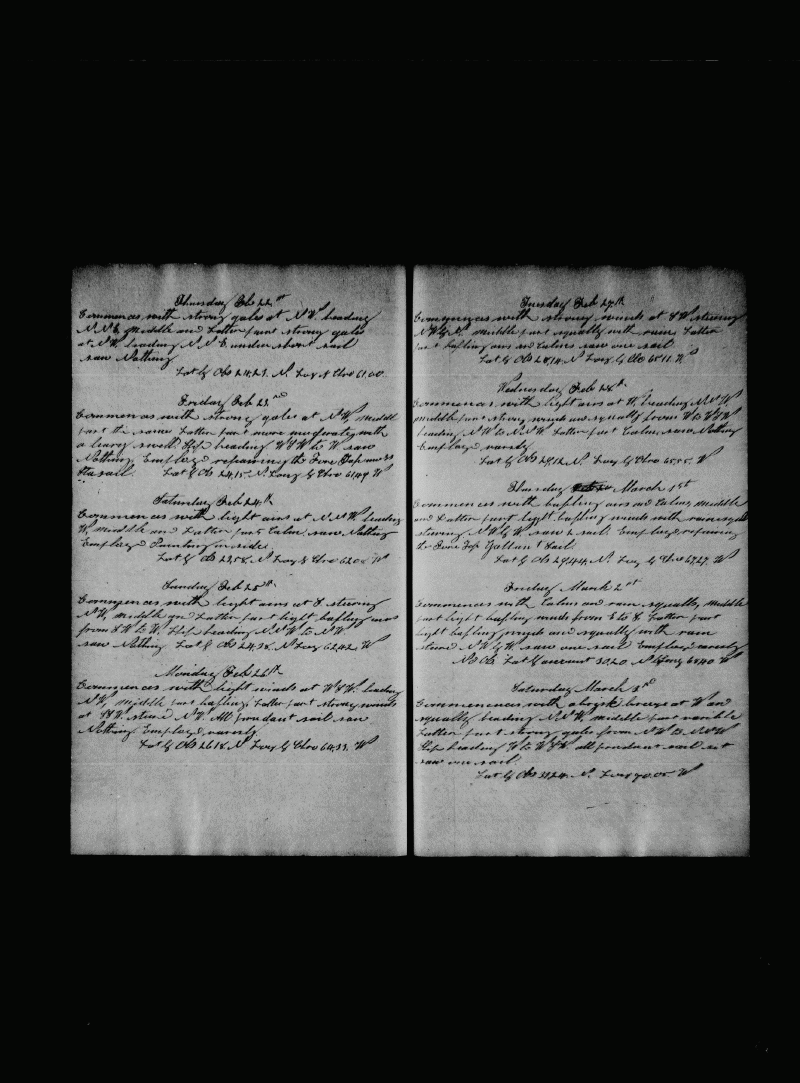 Thursday Feb 22nd
Commences with strong gales at N W. heading
N. N. E. Middle and Latter part strong gales
at N W. heading N N E under short sail
saw Nothing
Lat by Obs 24.29. N. Long by Chro 61.00.
Friday Feb 23nd
Commences with strong gales at N W, middle
part the same Latter part more moderate with
a heavy swell Ship heading W S W to W saw
Nothing Employed repairing the Fore Top
Staisail. Lat by Ob 24.15. N. Long by Chro 61.49 W
Saturday Feb 24th
Commences with light airs at N N W heading
W, middle and Latter part Calm. saw Nothing
Employed Painting inside
Lat by Obs 23.58. N Long by Chro 62.08 W
Sunday Feb 25th
Commences with light airs at S steering
N W, middle and Latter part light bafling airs
from S W to W. Ship heading N N W to N W
saw Nothing Lat by Obs 24.38. N Long 62.42. W
Monday Feb 26th
Commences with light winds at W S W. heading
N W, middle part bafling Latter part strong winds
at S S W. steered N W. All prudant sail saw
Nothing Employed varsly.
Lat by Obs 26.18. N Long by Chro 64.33. W
Tuesday Feb 27th
Commences with strong winds at S W steering
N W by N. middle part squally with rain Latter
part bafling airs and Calms saw one sail
Lat by Obs 28.14. N Long by Chro 65.11. W
Wednesday Feb 28th
Commences with light airs at W, heading N N W,
middle part strong winds and squally from W to W S W
heading N W to N N W. Latter part Calm. saw Nothing
Employed varsly
Lat by Obs 29.12. N. Long by Chro 65.55. W
Thursday March 1st
Commences with bafling airs and Calms, middle
and Latter part light bafling winds with rain squals
steering N W by W. saw 2 sail. Employed repairing
Fore Top Gallant Sail.
Lat by Obs 29.44. N. Long by Chro 67.27. W
Friday March 2nd
Commences with Calms and rain squalls, middle
part light bafling winds from E to S Latter part
light bafling winds and squally with rain
steered N W by W saw one sail Employed varsly
No Ob. Lat by account 30.20. N Long 68.40 W
Saturday March 3rd
Commences with a brisk breeze at W and
squally heading N N W, middle part variable
Latter part strong gales from N W to N N W
Ship heading W to W S W all prudant sail set
saw one sail.
Lat by Obs 31.24. N. Long 70.05 W